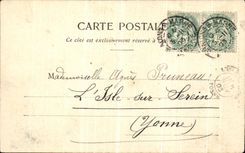 CARTE POSTALE
Ce côté est exclusivement réservé à
Mademoiselle Agnès Pruneau
L'Isle sur Serein
(Yonne)